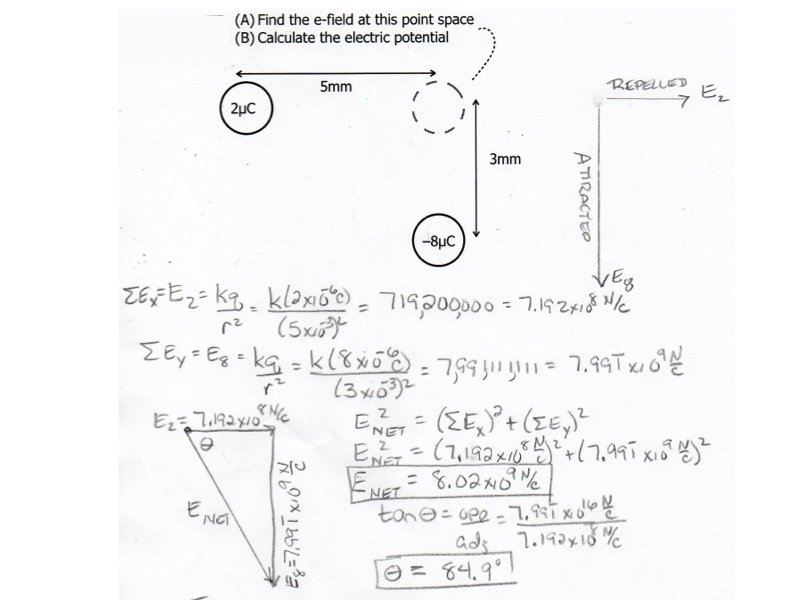 (A) Find the e-field at this point space
(B) Calculate the electric potential
5mm
2µC
REPELLED E₂
3mm
ATTRACTED
-8µC
E₈
ΣEₓ=E₂= kq/r² = k(2x10⁻⁶C)/(5x10⁻³)² = 719,200,000 = 7.192x10⁸ N/C
ΣEy = E₈ = kq/r² = k(8x10⁻⁶C)/(3x10⁻³)² = 7,99 111,111 = 7.991̅ x10⁹ N/C
E₂= 7.192x10⁸ N/C
θ
E NET
E₈=7.991̅ x10⁹ N/C
E²NET = (ΣEₓ)²+(ΣEy)²
E²NET = (7.192x10⁸ N/C)²+(7.991̅ x10⁹ N/C)²
E NET = 8.02x10⁹ N/C
tanθ = opp/adj = 7.991̅ x10 N/C / 7.192x10⁸ N/C
θ = 84.9°